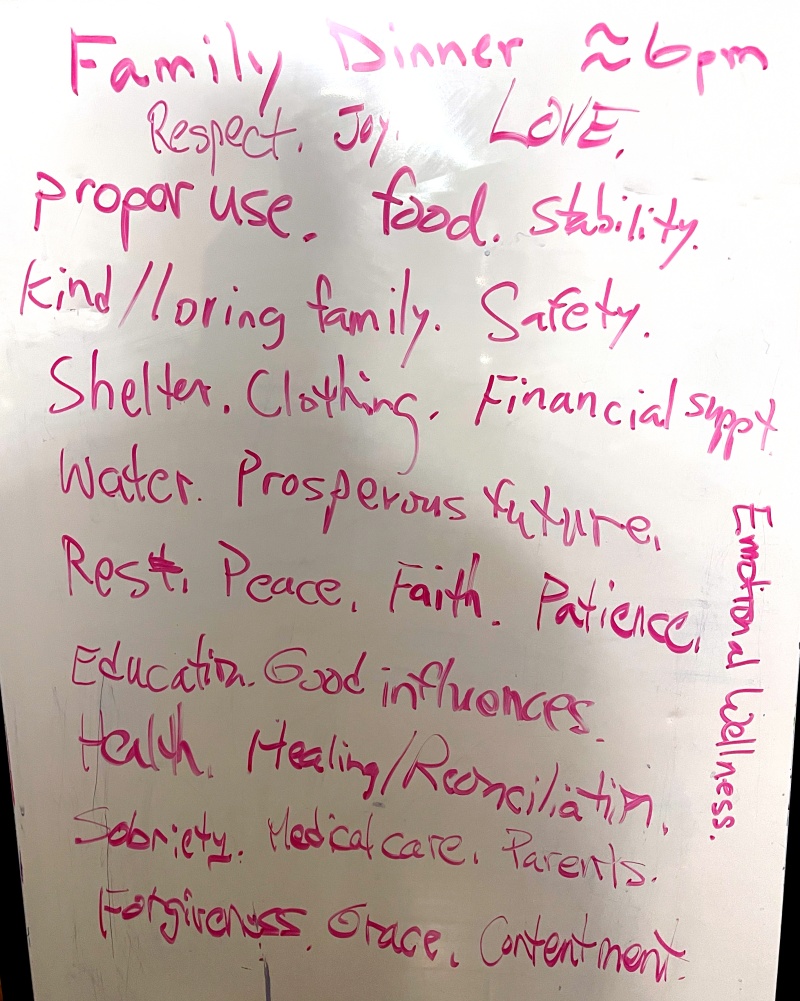 Family Dinner ≈6pm
Respect. Joy. LOVE.
propor use. food. Stability.
Kind/loring family. Safety.
Shelter. Clothing. Financial suppt.
Water. Prosperous future.
Rest. Peace. Faith. Patience.
Education. Good influences.
Health. Healing/Reconciliation.
Sobriety. Medical care. Parents.
Forgiveness. Grace. Contentment.
Emotional Wellness.